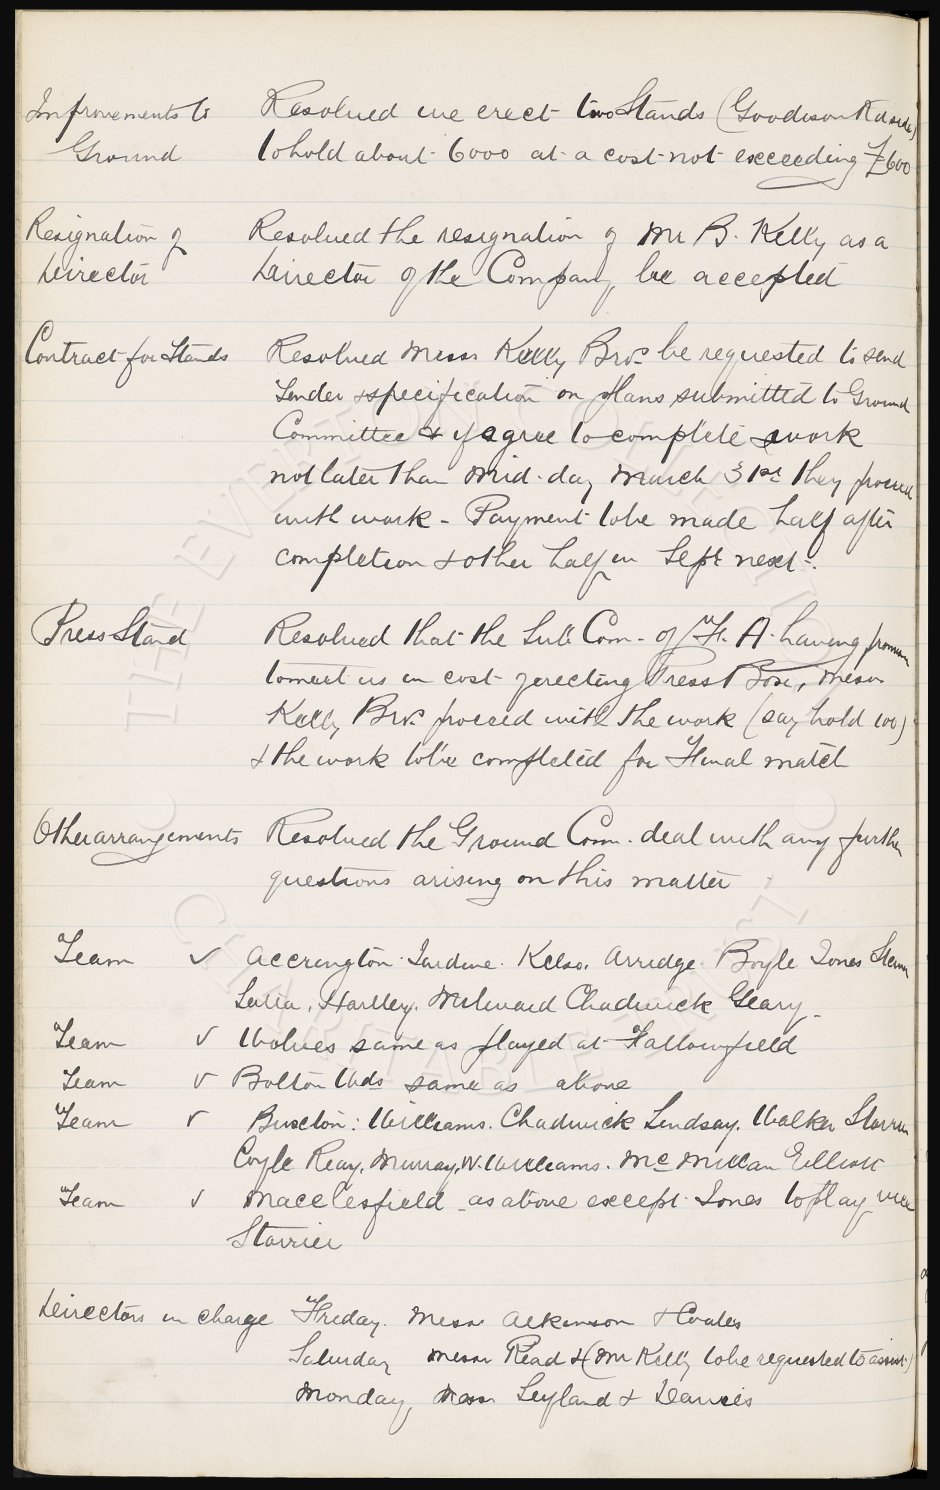 Improvements to Resolved we erect two Stands (Goodison Rd side)
Ground to hold about 6000 at a cost not exceeding £600
Resignation of Resolved the resignation of Mr B. Kelly as a
Director Director of the Company, be accepted
Contract for Stands Resolved Messrs Kelly Bros be requested to send
Tender & specification on plans submitted to Ground
Committee & if agree to complete work
not later than mid-day March 31st they proceed
with work - Payment to be made half after
completion & other half in Sept next.
Press Stand Resolved that the Sub Com. of F. A. having promised
to meet us in cost of erecting Press Box, Messrs
Kelly Bros proceed with the work (say hold 100)
& the work to be completed for Final match
Other arrangements Resolved the Ground Com. deal with any further
questions arising on this matter
Team ✓ Accrington. Jardine. Kelso. Arridge. Boyle Jones
Latta. Hartley. Milward Chadwick Geary.
Team ✓ Wolves same as played at Fallowfield
Team ✓ Bolton Wds same as above
Team ✓ Buxton: Williams. Chadwick Lindsay. Walker Storrier
Coyle Reay, Murray, W. Williams. McMillan Elliott
Team ✓ Macclesfield - as above except Jones to play vice
Storrier
Directors in charge Friday. Messrs Atkinson & Coates
Saturday Messrs Read & (Mr Kelly to be requested to assist)
Monday, Messrs Leyland & Davies
THE EVERTON COLLECTION
CHARITABLE TRUST